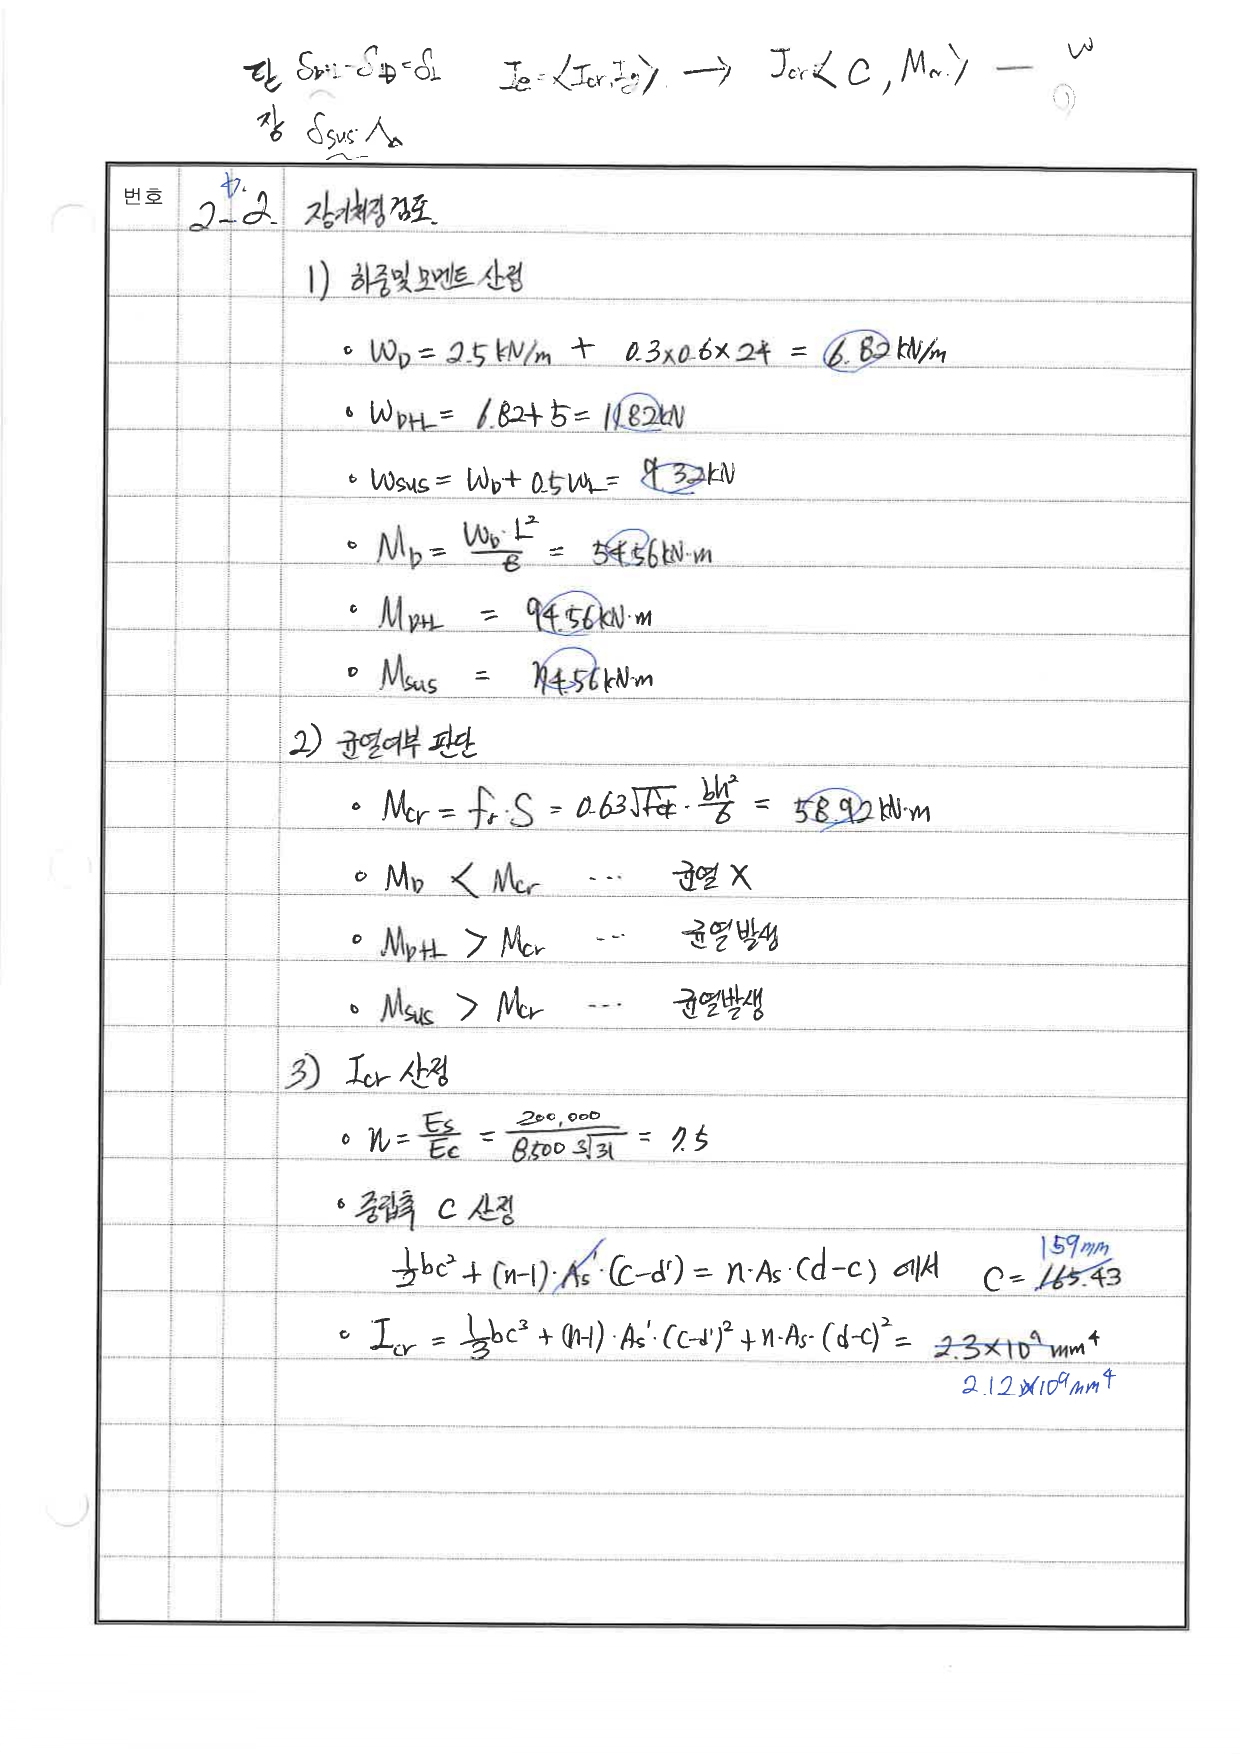 단 δD+L-δD=δL Ie=<Icr, Ig> → Icr<C, Mn> — w
장 δsus·λ
번호 2-2. 장기처짐 검토.
1) 하중 및 모멘트 산정
• WD = 2.5 kN/m + 0.3×0.6×24 = 6.82 kN/m
• WD+L = 6.82+5 = 11.82kN
• Wsus = WD + 0.5WL = 9.32kN
• MD = WD·L²/8 = 54.56kN·m
• MD+L = 94.56kN·m
• Msus = 74.56kN·m
2) 균열여부 판단
• Mcr = fr·S = 0.63√fck · bh²/6 = 58.92kN·m
• MD < Mcr ... 균열 X
• MD+L > Mcr ... 균열발생
• Msus > Mcr ... 균열발생
3) Icr 산정
• n = Es/Ec = 200,000/8,500 ∛31 = 7.5
• 중립축 C 산정
159mm
½bc² + (n-1)·As'·(C-d') = n·As·(d-c) 에서 C = 165.43
• Icr = ⅓bc³ + (n-1)·As'·(c-d')² + n·As·(d-c)² = 2.3×10⁹ mm⁴
2.12×10⁹mm⁴